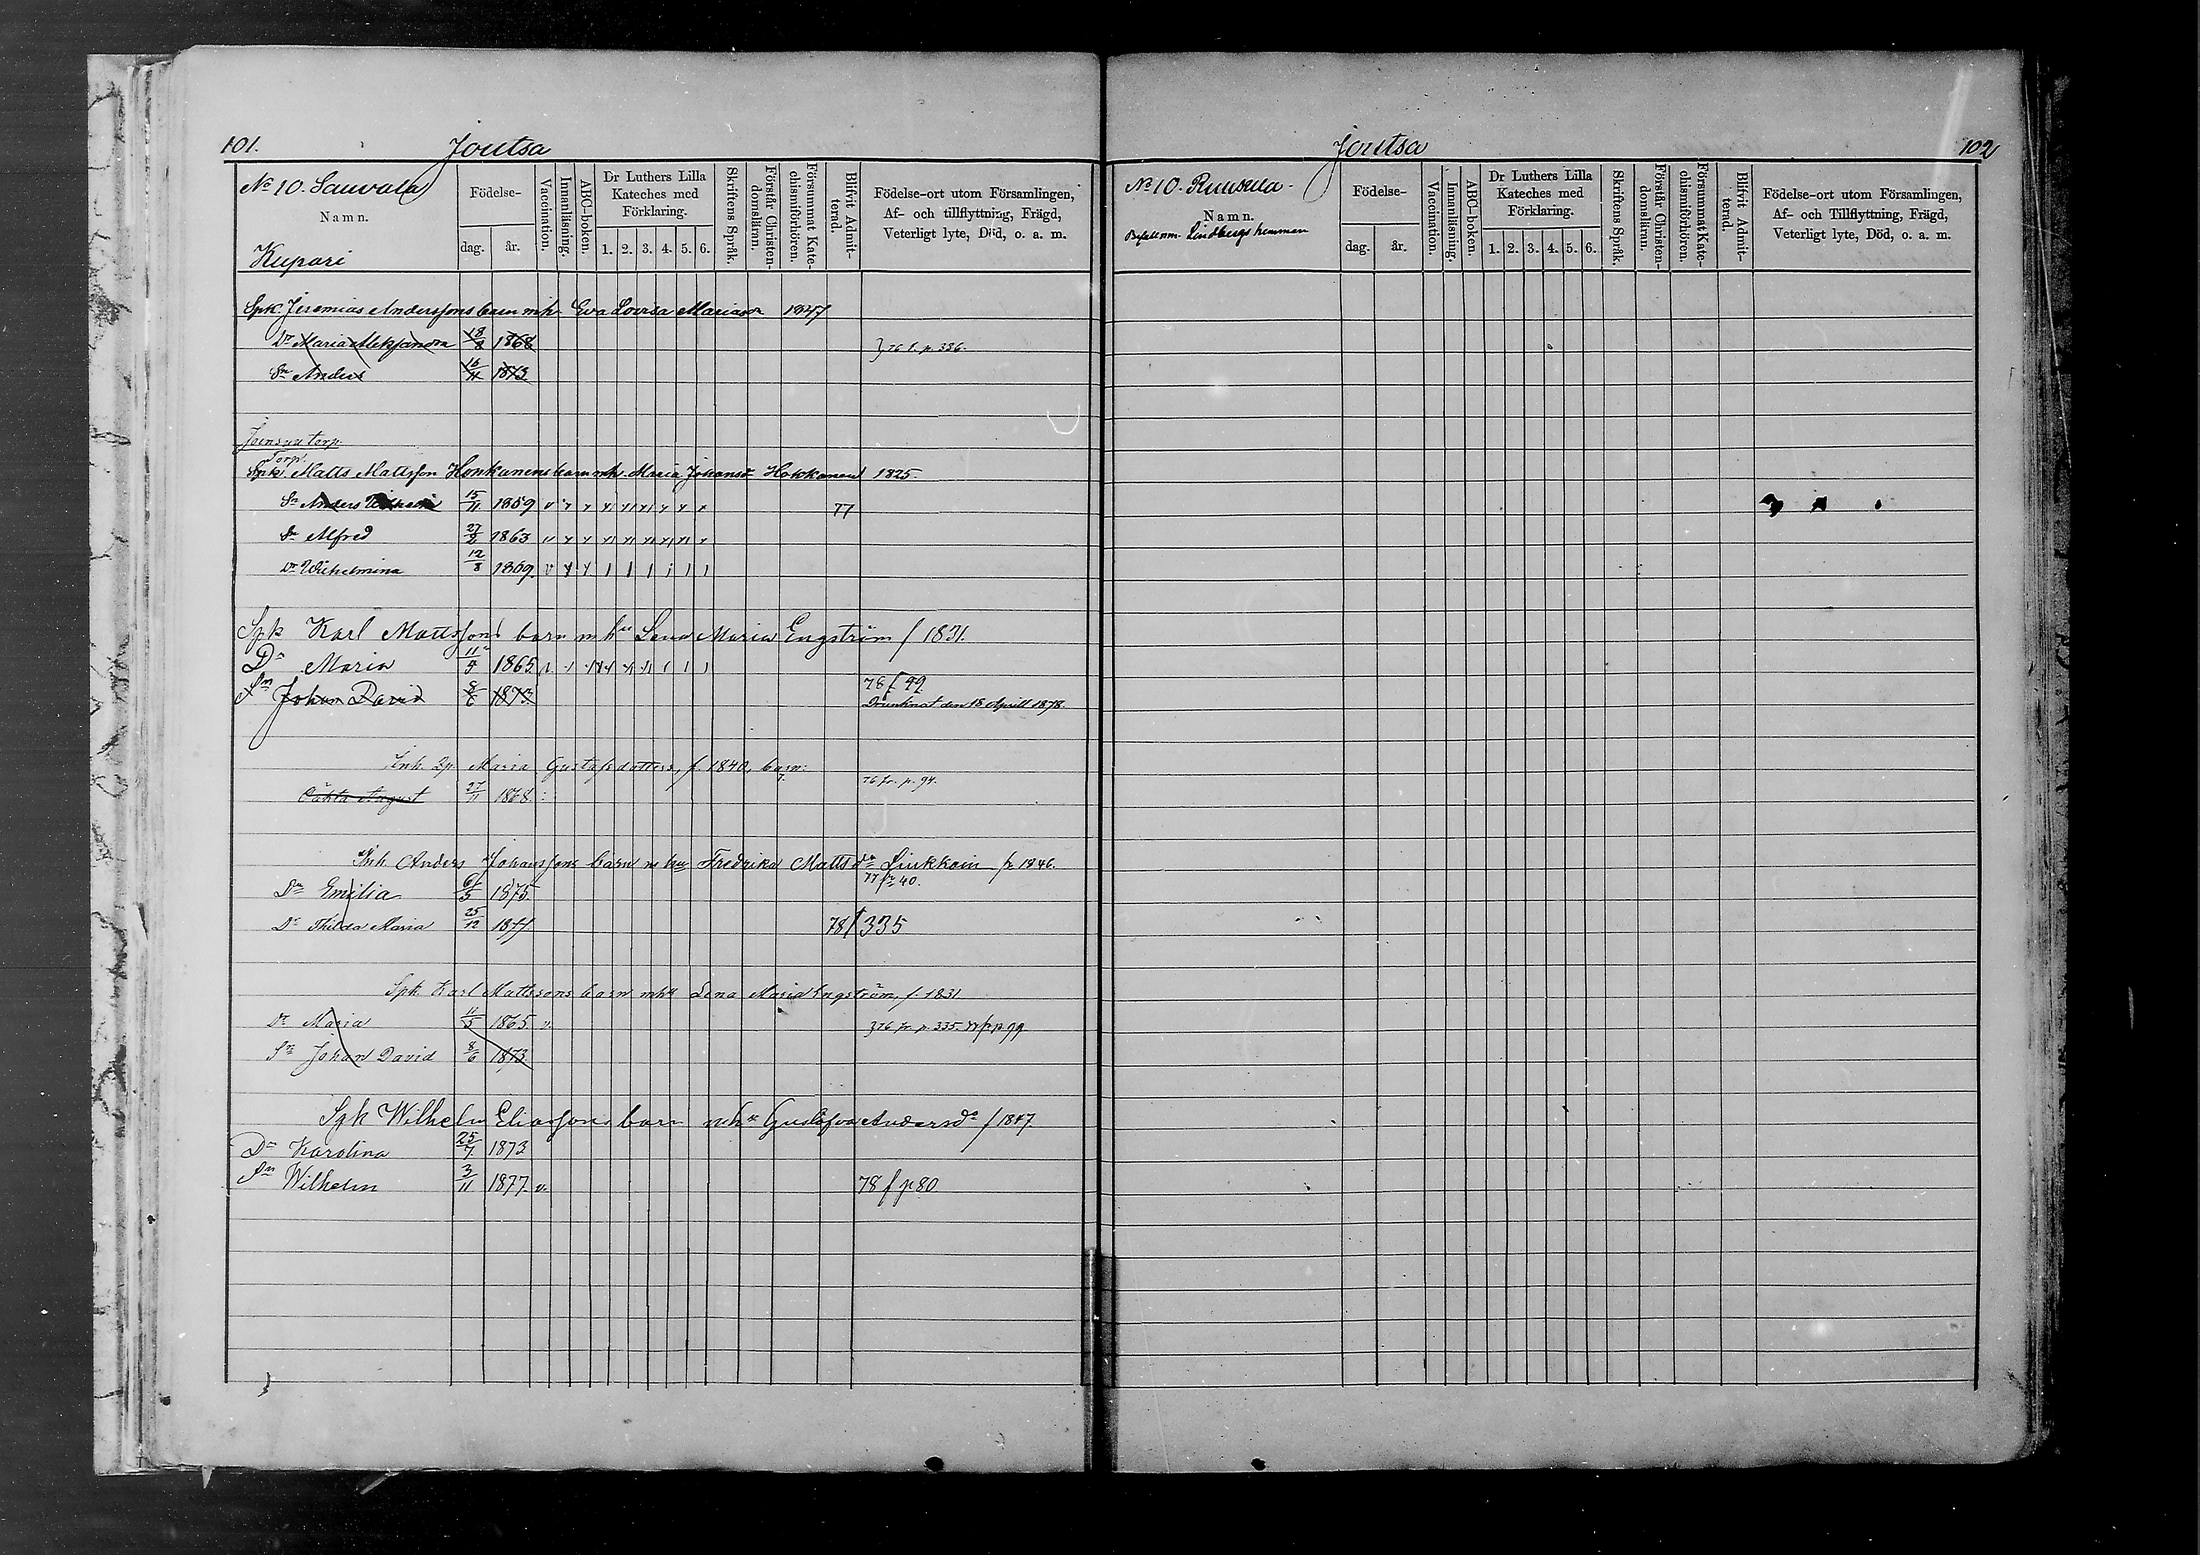 101. Joutsa
No 10. Sauvala
Namn.
Kupari
Födelse-
dag. år.
Vaccination.
Innanläsning.
ABC-boken.
Dr Luthers Lilla
Kateches med
Förklaring.
1. 2. 3. 4. 5. 6.
Skriftens Språk.
Förstår Christen-
domsläran.
Försummat Kate-
chismiförhören.
Blifvit Admit-
terad.
Födelse-ort utom Församlingen,
Af- och tillflyttning, Frägd,
Veterligt lyte, Död, o. a. m.
Spk Jeremias Anderssons barn mh Eva Lovisa Mariasdr 1847
Dr Maria Aleksandra 18/8 1868 } 76 f. p. 336.
Sn Anders 16/11 1873
Joensuu torp
Torp.
Spk. Matts Mattsson Honkanens barn mh. Maria Johansdr Hokkanen 1825.
Sn Anders 15/11 1859 77
Sn Alfred 27/2 1863
Dr Wilhelmina 12/8 1869
Spk Karl Mattssons barn m hu Lena Maria Engström f 1831.
Dr Maria 11/5 1865
78 f. 99
Sn Johan David 8/6 1873. Drunknat den 18 Aprill 1878.
Inh. Maria Gustafsdotters, f. 1840, barn:
76 fr. p. 94.
August 27/11 1868.
Inh Anders Johanssons barn m hu Fredrika Matts dr Liukkoin f. 1846.
77 fr 40.
Dr Emilia 6/5 1875
Dr Thilda Maria 25/12 1877 78 f 335
Spk Karl Mattssons barn mhu Lena Maria Engström, f. 1831
Dr Maria 11/5 1865 v. } 76 fr. p. 335. p. 99
Sn Johan David 8/6 1873
Spk Wilhelm Eliassons barn mhu Gustafva Andersdr f 1847.
Dr Karolina 25/7 1873
Sn Wilhelm 3/11 1877. v. 78 f p 80
Joutsa 102
No 10. Ruusula
Namn.
Lindbergs hemman
Födelse-
dag. år.
Vaccination.
Innanläsning.
ABC-boken.
Dr Luthers Lilla
Kateches med
Förklaring.
1. 2. 3. 4. 5. 6.
Skriftens Språk.
Förstår Christen-
domsläran.
Försummat Kate-
chismiförhören.
Blifvit Admit-
terad.
Födelse-ort utom Församlingen,
Af- och Tillflyttning, Frägd,
Veterligt lyte, Död, o. a. m.